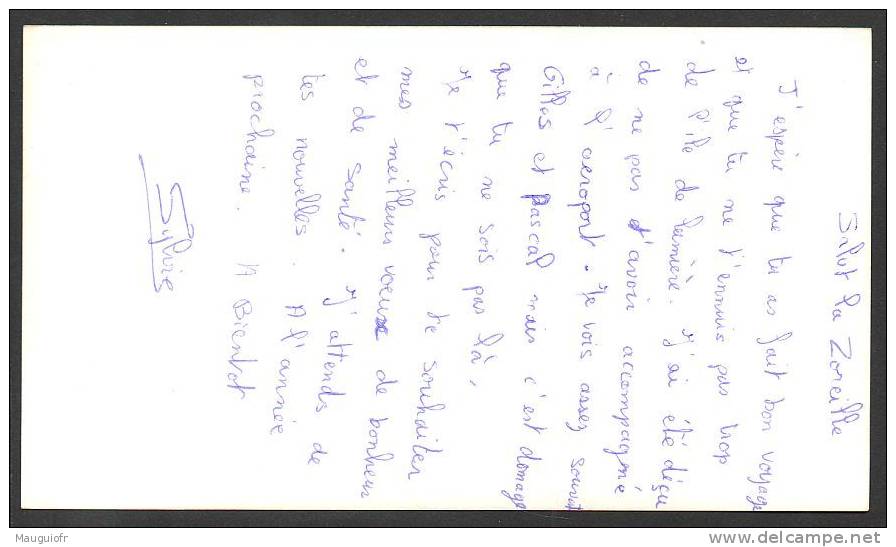 Salut la Zoreille
J'espère que tu as fait bon voyage
et que tu ne t'ennuis pas trop
de l'île de lumière. J'ai été déçu
de ne pas t'avoir accompagné
à l'aéroport. Je vois assez souvent
Gilles et Pascal mais c'est domage
que tu ne sois pas là,
Je t'écris pour te souhaiter
mes meilleurs voeux de bonheur
et de santé. J'attends de
tes nouvelles. A l'année
prochaine. A Bientot
Sylvie
Mauguiofr
www.delcampe.net